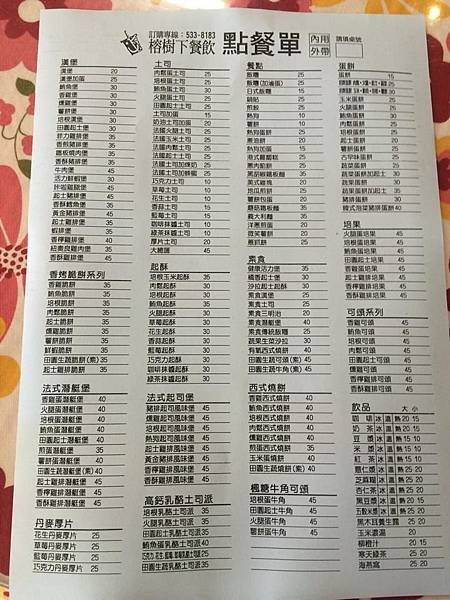 訂購專線：533-8183
榕樹下餐飲 點餐單
內用 外帶
請填桌號
漢堡
漢堡 20
漢堡加蛋 25
鮪魚堡 30
香雞堡 30
燻雞堡 30
薯餅堡 30
培根漢堡 30
田園起士堡 30
菲力雞排堡 35
香煎豬排堡 35
鐵板燒肉堡 35
香酥豬排堡 35
牛肉堡 45
活力鮮蝦堡 30
起士豬排堡 45
香酥鱈魚堡 50
黃金豬排堡 45
起士雞排堡 45
蝦排堡 45
香檸雞排堡 45
紐奧良雞肉堡 45
香酥雞排堡 45
香烤脆餅系列
香雞脆餅 35
鮪魚脆餅 35
培根脆餅 35
肉鬆脆餅 35
起士脆餅 35
燻雞脆餅 35
薯餅脆餅 35
鮮蝦脆餅 35
田園生蔬脆餅(素) 35
起士雞排脆餅 45
法式潛艇堡
香雞潛艇堡 40
火腿潛艇堡 40
鮪魚潛艇堡 40
田園起士潛艇堡 40
煎蛋潛艇堡 40
薯餅潛艇堡 40
田園生蔬潛艇堡(素) 40
起士雞排潛艇堡 45
香檸雞排潛艇堡 45
香酥雞排潛艇堡 45
丹麥厚片
花生丹麥厚片 25
草莓丹麥厚片 25
藍莓丹麥厚片 25
巧克力丹麥厚片 25
土司
肉鬆蛋土司 25
培根蛋土司 25
鮪魚蛋土司 30
火腿蛋土司 25
田園起士土司 25
土司加蛋 15
奶油土司加蛋 20
法國火腿土司 25
法國玉米土司 25
法國肉鬆土司 25
法國起士土司 25
巧克力土司 10
草莓土司 10
花生土司 10
藍莓土司 15
咖啡抹醬土司 15
綠茶抹醬土司 15
厚片土司 20
大總匯 45
起酥
培根玉米起酥 35
肉鬆起酥 35
鮪魚起酥 35
火腿起酥 35
草莓起酥 30
花生起酥 30
藍莓起酥 30
巧克力起酥 30
咖啡抹醬起酥 30
綠茶抹醬起酥 30
法式起司堡
豬排起司風味堡 45
火腿起司風味堡 45
培根起司風味堡 45
熱狗起司風味堡 45
起士雞排風味堡 45
黃金豬排風味堡 45
香檸雞排風味堡 45
香酥雞排風味堡 45
高鈣乳酪土司派
培根乳酪土司派 35
火腿乳酪土司派 35
肉鬆乳酪土司派 35
鮪魚蛋乳酪土司派 40
田園生蔬乳酪土司派 40
餐點
飯糰 25
飯糰(加滷蛋) 25
日式飯糰 15
鍋貼 25
煎餃 25
熱狗 10
薯餅 10
熱狗蛋餅 25
蔥油餅 20
熱狗加蛋 15
港式蘿蔔糕 25
蔥肉餡餅 25
黑胡椒鐵板麵 35
英式雞塊 30
培根煎餅 25
薯餅包蛋 20
蘑菇鐵板麵 35
義大利麵 35
洋蔥煎蛋 20
微笑薯餅 20
蔥抓餅 25
素食
健康活力堡 35
橘香起士堡 30
沙拉起士起酥 30
素食漢堡 25
素食土司 25
素食三明治 20
素食潛艇堡 40
素食傳統飯糰 25
蔬果生菜沙拉 30
有氧西式燒餅 40
田園生蔬可頌(素) 45
田園生蔬牛角(素) 45
西式燒餅
香雞西式燒餅 40
鮪魚西式燒餅 40
火腿西式燒餅 40
燻雞西式燒餅 40
煎蛋西式燒餅 35
玉米蛋燒餅 40
田園生蔬燒餅(素) 40
楓糖牛角可頌
培根蛋牛角 45
火腿蛋牛角 45
田園起士牛角 45
薯餅蛋牛角 45
蛋餅
蛋餅 15
玉米蛋餅 25
鮪魚蛋餅 30
肉鬆蛋餅 25
培根蛋餅 25
火腿蛋餅 25
起士蛋餅 25
薯餅蛋餅 25
古早味蛋餅 25
燻雞蛋餅 30
蔬菜蛋餅加起士 30
蔬菜蛋餅 25
豬排蛋餅 30
韓式泡菜豬排蛋餅 40
培果
火腿蛋培果 45
培根蛋培果 45
鮪魚蛋培果 45
田園起士培果 45
起士雞排培果 45
香酥雞排培果 45
可頌系列
香雞可頌 45
鮪魚可頌 45
培根可頌 45
肉鬆可頌 45
火腿可頌 45
田園起士可頌 45
燻雞可頌 45
香檸雞排可頌 45
香酥雞排可頌 45
飲品 大 小
咖啡 冰 溫 熱 20 15
奶茶 冰 溫 熱 20 15
豆漿 冰 溫 熱 20 15
米漿 冰 溫 熱 15 10
紅茶 冰 溫 熱 15 10
薏仁漿 冰 溫 熱 25 20
芝麻糊 冰 溫 熱 25 20
杏仁茶 冰 溫 熱 25 20
黑豆漿 冰 溫 熱 20 15
五穀米漿 冰 溫 熱 25 20
黑木耳養生露 25
玉米濃湯 20
柳橙汁 25 20
寒天綠茶 25 20
海燕窩 25 20